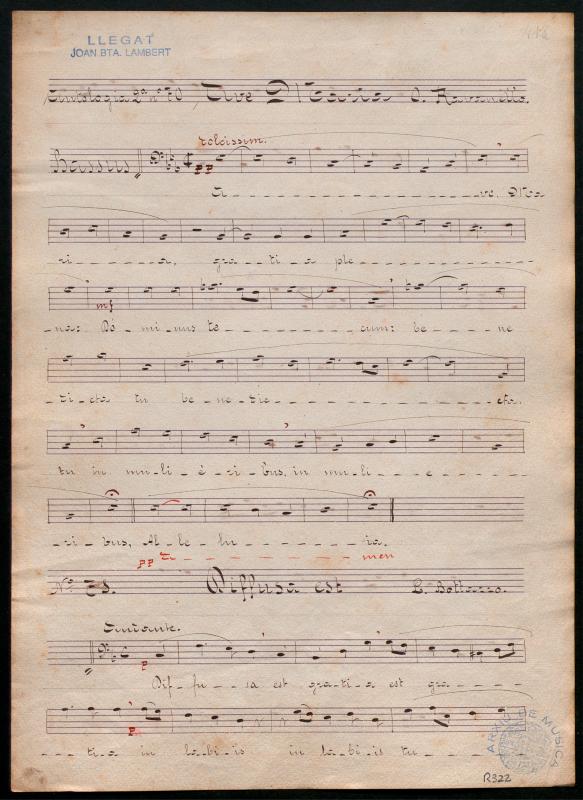 LLEGAT
JOAN BTA. LAMBERT
Antologia 2ª nº 70 Ave Maria O. Ravanello.
dolcissim.
Bassus pp
A - - - ve, Ma
ri - - - a, gra - ti - a ple - - -
mf
- na: Dó - mi - nus te - - - cum: be - - - ne
- di - cta tu be - ne - dic - - - cta.
tu in mu - li - é - ri - bus, in mu - li - - - e - - -
- ri - bus, Al - le - lu - - - ia.
pp A - - - men
Nº 73. Diffusa est L. Bottazzo.
Andante.
p
Dif - fu - - sa est gra - ti - a est gra - - -
p
- - - ti - a in la - bi - is in la - bi - is tu - - -
ARXIU DE MUSICA
R322